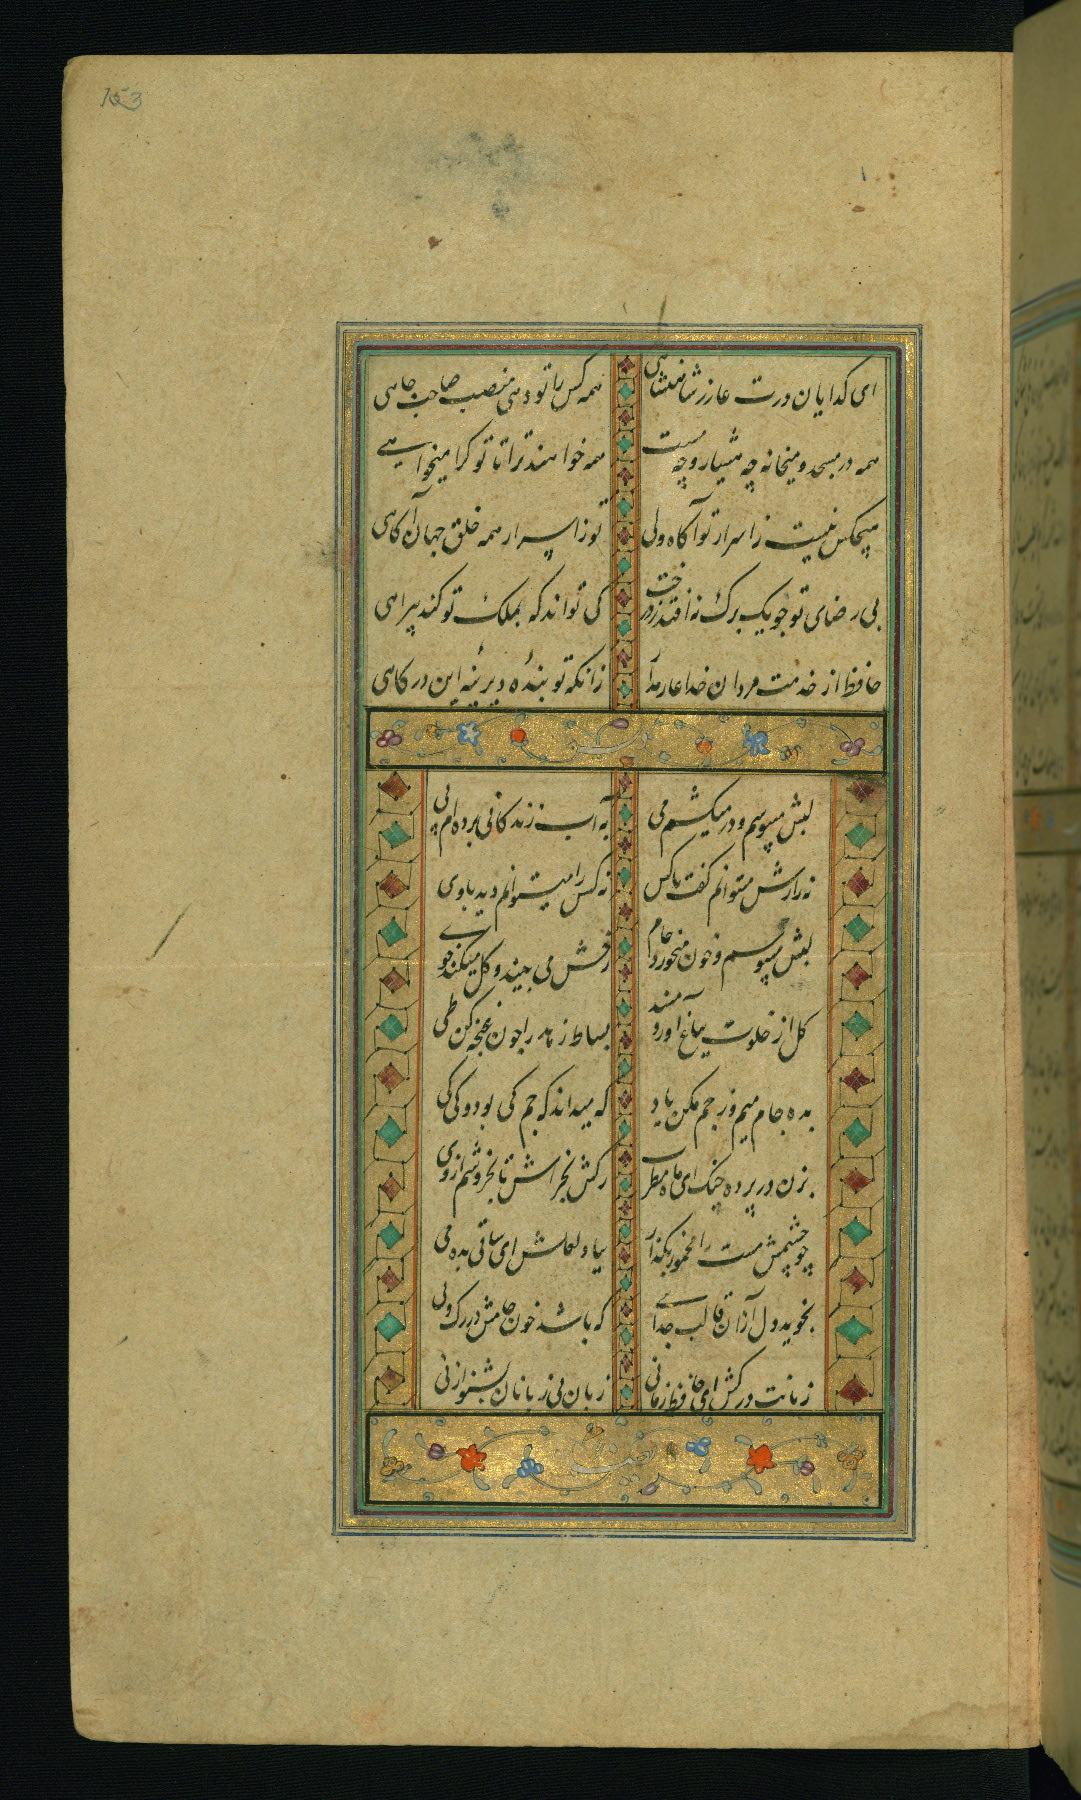 153
ای کدایان درت عار ز شاهنشاهی همه کس را تو دهی منصب صاحب جاهی
همه در مسجد و میخانه چه هشیار و چه مست همه خواهند ترا تا تو کرا میخواهی
هیچکس نیست ز اسرار تو آگاه ولی تو ز اسرار همه خلق جهان آکاهی
بی رضای تو جو یک برک نه افتد ز درخت کی تواند که بملک تو کند بیراهی
حافظ از خدمت مردان خدا عار مدار زانکه تو بنده دیرینه این درکاهی
لبش میبوسم و در میکشم می به آب زندکانی برده‌ام پی
نه رازش میتوانم کفت با کس نه کس را میتوانم دید با وی
لبش میبوسم و خون میخورد جام رخش می بیند و کل میکند خوی
کل از خلوت بباغ آورد مسند بساط زهد را چون غنچه کن طی
بده جام میم وز جم مکن یاد که میداند که جم کی بود و کی کی
بزن در پرده چنک ای ماه مطرب رکش بخراش تا بخروشم از وی
چو چشمش مست را مخمور بکذار بیاد لعلش ای ساقی بده می
نجوید دل از آن قالب جدایی که باشد خون جامش در رک و پی
زبانت درکش ای حافظ زمانی زبان بی زبانان بشنو از نی